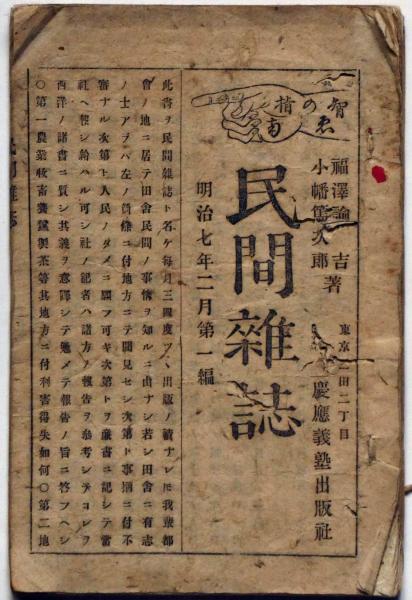 智恵の指南
福澤諭吉
小幡篤次郎 著
東京三田二丁目
慶應義塾出版社
民間雜誌
明治七年二月第一編
此書ヲ民間雜誌ト名ケ每月三四度ツヽ出版ノ積ナレ𪜈我輩都
會ノ地ニ居テ田舎民間ノ事情ヲ知ルニ由ナシ若シ田舎ニ有志
ノ士アラバ左ノ箇條ニ付地方ニテ聞見セシ次第ト事柄ニ付不
審ナル次第ト人民ノタメニ願フ可キ次第トヲ嚴書ニ記シテ當
社ヘ報シ給ハル可シ社ノ記者ハ諸方ノ報告ヲ參考シテコレヲ
西洋ノ諸書ニ質シ其義ヲ意譯シテ勉メテ報告ノ旨ニ答フヘシ
〇第一農業牧畜養蠶製茶等其地方ニ付利害得失如何〇第二地